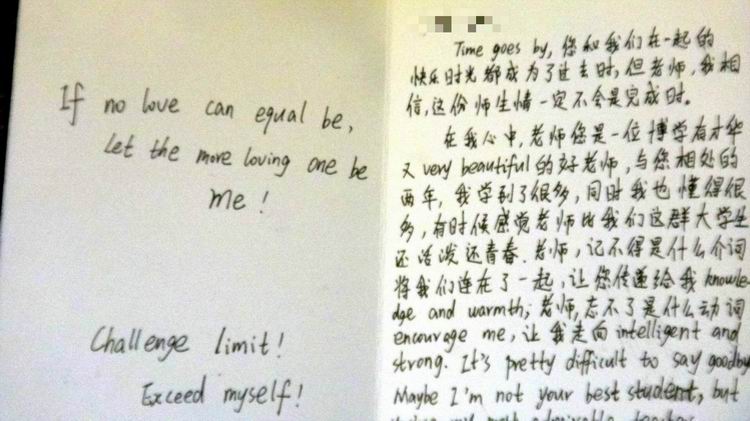 If no love can equal be,
Let the more loving one be
me!
Challenge limit!
Exceed myself!
Time goes by, 您和我们在一起的
快乐时光都成为了过去时,但老师,我相
信,这份师生情一定不会是完成时。
在我心中,老师您是一位博学有才华
又very beautiful的好老师,与您相处的
两年,我学到了很多,同时我也懂得很
多,有时候感觉老师比我们这群大学生
还活泼还青春.老师,记不得是什么介词
将我们连在了一起,让您传递给我knowle-
dge and warmth;老师,忘不了是什么动词
encourage me,让我走向intelligent and
strong. It's pretty difficult to say goodby
Maybe I'm not your best student, but
my most admirable teacher